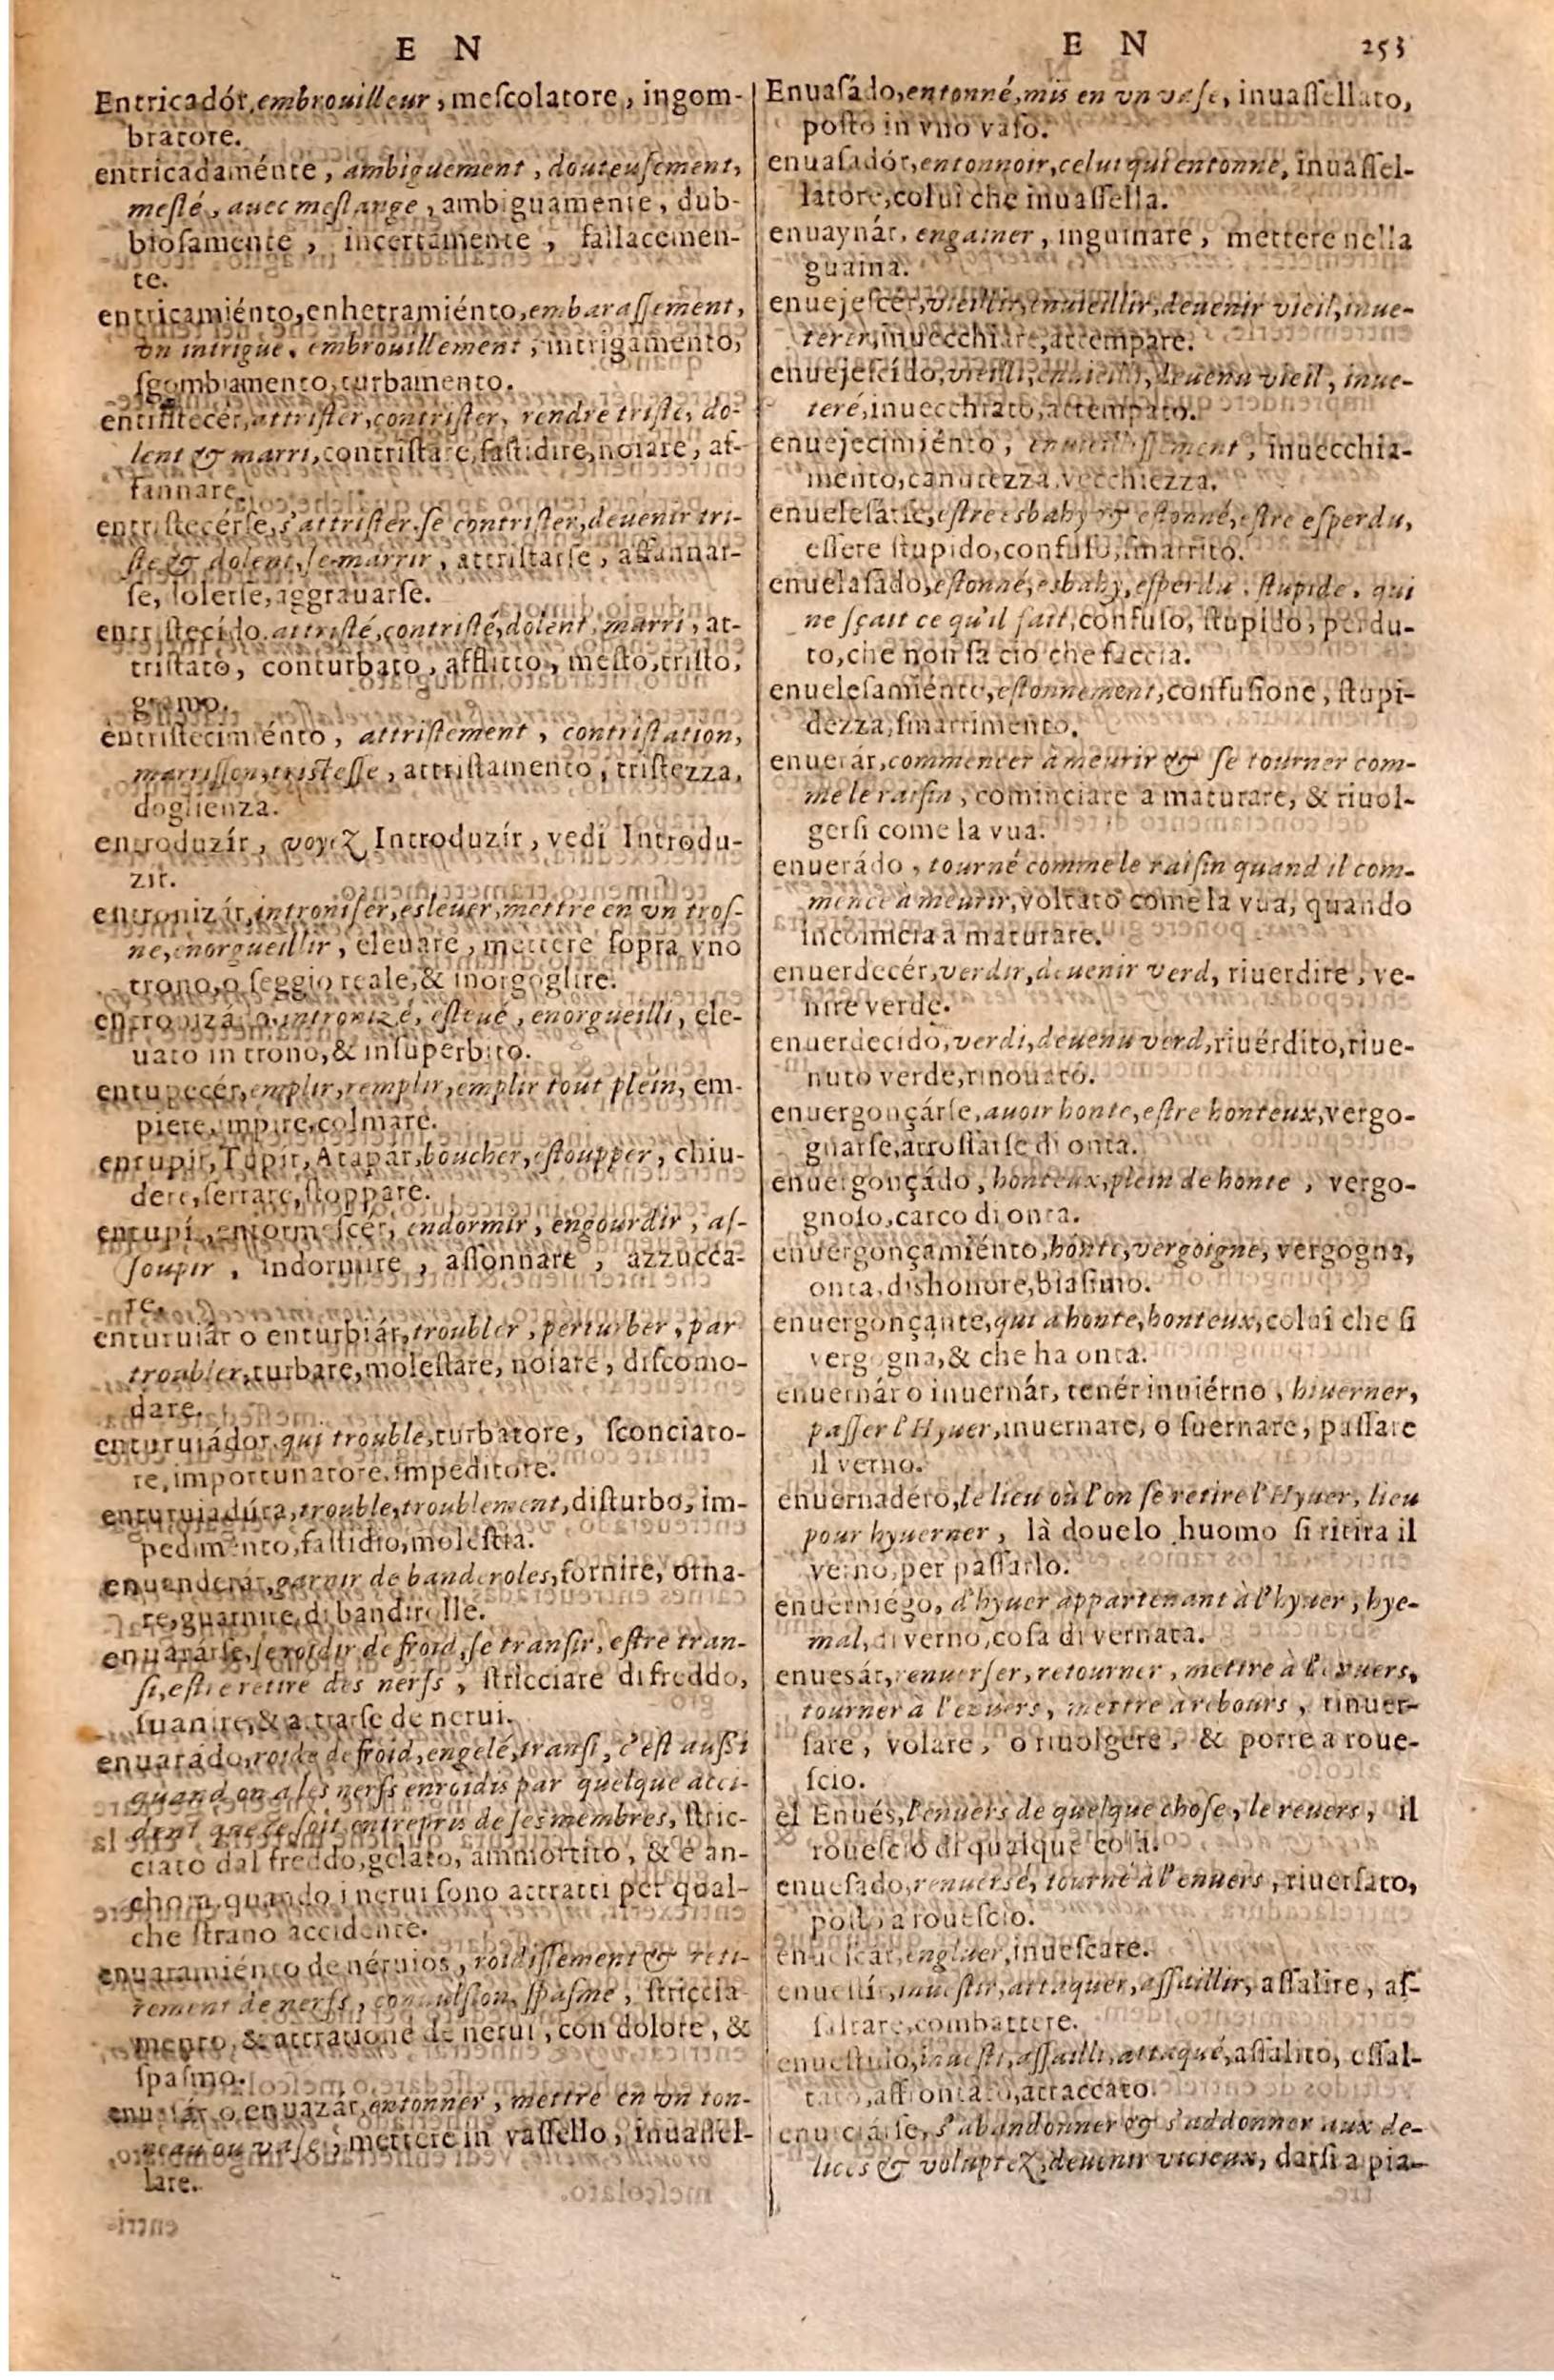 E N
Entricadór, embrouilleur, meſcolatore, ingom-
bratore.
entricadaménte, ambiguement, douteuſement,
meſlé, auec meſlange, ambiguamente, dub-
bioſamente, incertamente, fallacemen-
te.
entricamiénto, enhetramiénto, embaraſſement,
vn intrigue, embrouillement, intrigamento,
ſgombiamento, turbamento.
entriſtecér, attriſter, contriſter, rendre triſte, do-
lent & marri, contriſtare, faſtidire, noiare, af-
fannare.
entriſtecérſe, s'attriſter, ſe contriſter, deuenir tri-
ſte & dolent, ſe marrir, attriſtarſe, affannar-
ſe, dolerſe, aggrauarſe.
entriſtecído, attriſté, contriſté, dolent, marri, at-
triſtato, conturbato, afflitto, meſto, triſto,
gramo.
entriſtecimiénto, attriſtement, contriſtation,
marriſſon, triſteſſe, attriſtamento, triſtezza,
doglienza.
entroduzír, voyez Introduzír, vedi Introdu-
zir.
entronizár, intronizer, esleuer, mettre en vn troſ-
ne, enorgueillir, eleuare, mettere ſopra vno
trono, o ſeggio reale, & inorgoglire.
entronizádo, intronizé, esleué, enorgueilli, ele-
uato in trono, & inſuperbito.
entupecér, emplir, remplir, emplir tout plein, em-
piere, impire, colmare.
entupír, Tupir, Atapár, boucher, eſtoupper, chiu-
dere, ſerrare, ſtoppare.
entupí, entormeſcér, endormir, engourdir, aſ-
ſoupir, indormire, aſſonnare, azzucca-
re.
enturuiár o enturbiár, troubler, perturber, par
troubler, turbare, moleſtare, noiare, diſcomo-
dare.
enturuiádor, qui trouble, turbatore, ſconciato-
re, importunatore, impeditore.
enturuiadúra, trouble, troublement, diſturbo, im-
pedimento, faſtidio, moleſtia.
enuanderár, garnir de banderoles, fornire, orna-
re, guarnire, di bandirolle.
enuarárſe, ſe roidir de froid, ſe tranſir, eſtre tran-
ſi, eſtre retire des nerfs, ſtricciare di freddo,
ſuanire, & attrarſe de nerui.
enuarádo, roide de froid, engelé, tranſi, c'eſt auſſi
quand on a les nerfs enroidis par quelque acci-
dent que ce ſoit, entrepris de ſes membres, ſtric-
ciato dal freddo, gelato, ammortito, & e an-
chora quando i nerui ſono attratti per qual-
che ſtrano accidente.
enuaramiénto de néruios, roidiſſement & reti-
rement de nerfs, conuulſion, ſpaſme, ſtriccia
mento, & attratione de nerui, con dolore, &
ſpaſmo.
enuaſár o enuazár, entonner, mettre en vn ton-
neau ou vaſe, mettere in vaſſello, inuaſſel-
lare.
E N 253
Enuaſádo, entonné, mis en vn vaſe, inuaſſellato,
poſto in vno vaſo.
enuaſadór, entonnoir, celui qui entonne, inuaſſel-
latore, colui che inuaſſella.
enuaynár, engainer, inguinare, mettere nella
guaina.
enuejeſcér, vieillir, enuieillir, deuenir vieil, inue-
terer, inuecchiare, attempare.
enuejeſcído, vieilli, enuieilli, deuenu vieil, inue-
teré, inuecchiato, attempato.
enuejecimiénto, enuieilliſſement, inuecchia-
mento, canutezza, vecchiezza.
enueleſarſe, eſtre esbahy & eſtonné, eſtre eſperdu,
eſſere ſtupido, confuſo, ſmarrito.
enuelaſado, eſtonné, esbahy, eſperdu, ſtupide, qui
ne ſçait ce qu'il fait, confuſo, ſtupido, perdu-
to, che non ſa cio che faccia.
enueleſamiénto, eſtonnement, confuſione, ſtupi-
dezza, ſmarrimento.
enuerár, commencer à meurir & ſe tourner com-
me le raiſin, cominciare a maturare, & riuol-
gerſi come la vua.
enuerádo, tourné comme le raiſin quand il com-
mence à meurir, voltato come la vua, quando
incomicia a maturare.
enuerdecér, verdir, deuenir verd, riuerdire, ve-
nire verde.
enuerdecído, verdi, deuenu verd, riuérdito, riue-
nuto verde, rinouato.
enuergonçárſe, auoir honte, eſtre honteux, vergo-
gnarſe, arroſſarſe di onta.
enuergonçádo, honteux, plein de honte, vergo-
gnoſo, carco di onta.
enuergonçamiénto, honte, vergoigne, vergogna,
onta, dishonore, biaſimo.
enuergonçante, qui a honte, honteux, colui che ſi
vergogna, & che ha onta.
enuernár o inuernár, tenér inuiérno, hiuerner,
paſſer l'Hyuer, inuernare, o ſuernare, paſſare
il verno.
enuernadéro, le lieu où l'on ſe retire l'Hyuer, lieu
pour hyuerner, là douelo huomo ſi ritira il
verno, per paſſarlo.
enuerniégo, d'hyuer, appartenant à l'hyuer, hye-
mal, di verno, coſa di vernata.
enuesár, renuerſer, retourner, mettre à l'enuers,
tourner à l'enuers, mettre à rebours, rinuer-
ſare, volare, o riuolgere, & porre a roue-
ſcio.
el Enués, l'enuers de quelque choſe, le reuers, il
roueſcio di qualque coſa.
enueſado, renuerſé, tourné à l'enuers, riuerſato,
poſto a roueſcio.
enueſcár, engluer, inueſcare.
enueſtír, inueſtir, attaquer, aſſaillir, aſſalire, aſ-
ſaltare, combattere.
enueſtido, inueſti, aſſailli, attaqué, aſſalito, eſſal-
tato, affrontato, attaccato.
enuiciárſe, s'abandonner & s'addonner aux de-
lices & voluptez, deuenir vicieux, darſi a pia-